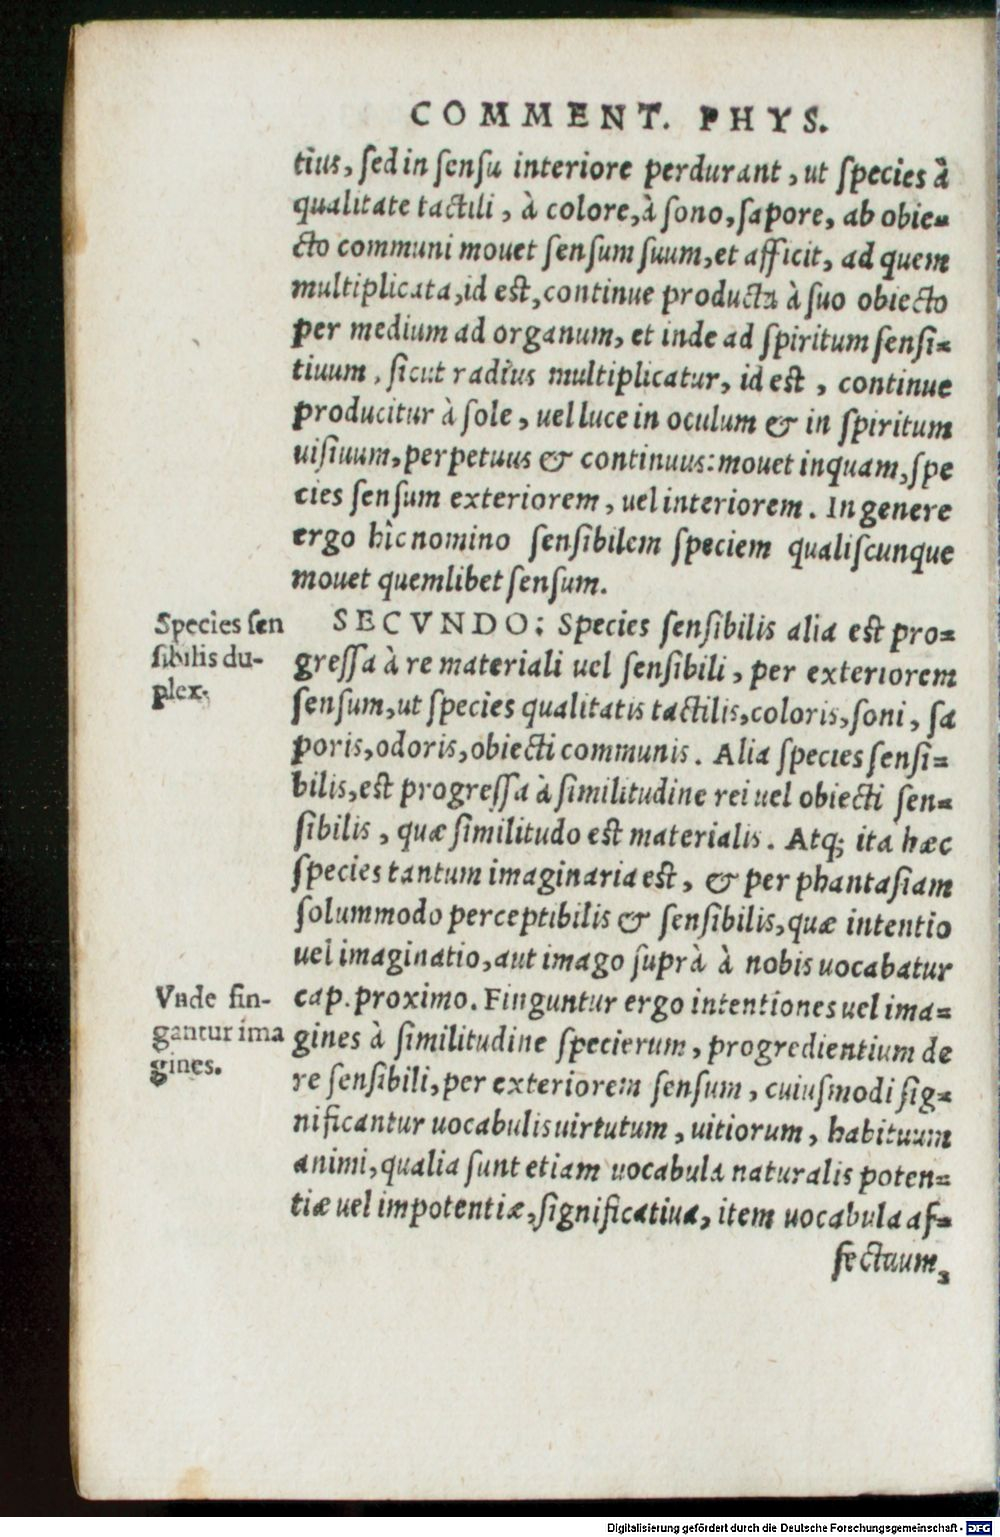 COMMENT. PHYS.
tius, sed in sensu interiore perdurant, ut species à
qualitate tactili, à colore, à sono, sapore, ab obie=
cto communi mouet sensum suum, et afficit, ad quem
multiplicata, id est, continue producta à suo obiecto
per medium ad organum, et inde ad spiritum sensi=
tiuum, sicut radius multiplicatur, id est, continue
producitur à sole, uel luce in oculum & in spiritum
uisiuum, perpetuus & continuus: mouet inquam, spe
cies sensum exteriorem, uel interiorem. In genere
ergo hîc nomino sensibilem speciem qualiscunque
mouet quemlibet sensum.
Species sen
sibilis du-
plex.
SECVNDO: Species sensibilis alia est pro=
gressa à re materiali uel sensibili, per exteriorem
sensum, ut species qualitatis tactilis, coloris, soni, sa
poris, odoris, obiecti communis. Alia species sensi=
bilis, est progressa à similitudine rei uel obiecti sen=
sibilis, quæ similitudo est materialis. Atq; ita hæc
species tantum imaginaria est, & per phantasiam
solummodo perceptibilis & sensibilis, quæ intentio
uel imaginatio, aut imago suprà à nobis uocabatur
Vnde fin-
gantur ima
gines.
cap. proximo. Finguntur ergo intentiones uel ima=
gines à similitudine specierum, progredientium de
re sensibili, per exteriorem sensum, cuiusmodi sig=
nificantur uocabulis uirtutum, uitiorum, habituum
animi, qualia sunt etiam uocabula naturalis poten=
tiæ uel impotentiæ, significatiua, item uocabula af=
fectuum,
Digitalisierung gefördert durch die Deutsche Forschungsgemeinschaft - DFG